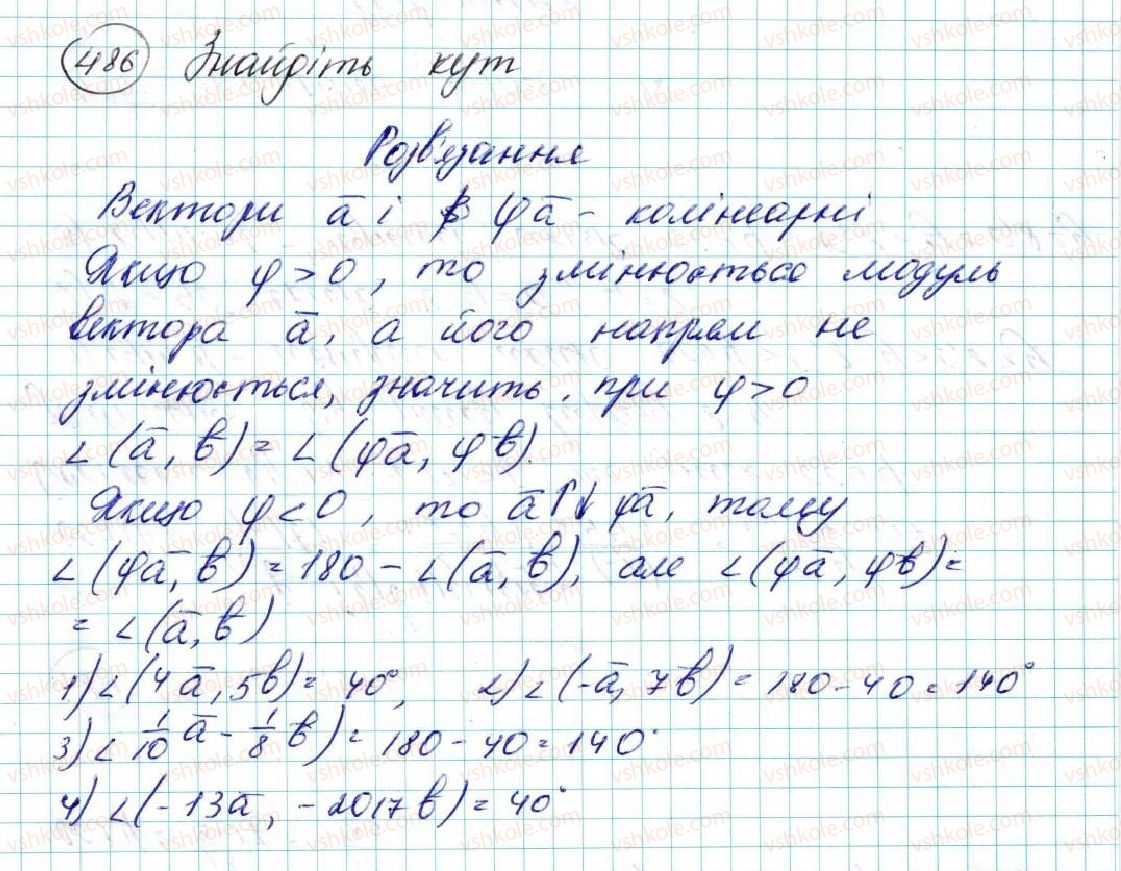 486 Знайдіть кут
Розв'язання
Вектори a̅ і φa̅ - колінеарні
Якщо φ > 0, то змінюється модуль
вектора a̅, а його напрям не
змінюється, значить, при φ > 0
∠(a̅, b̅) = ∠(φa̅, φb̅).
Якщо φ < 0, то a̅ ↑↓ φa̅, тому
∠(φa̅, b̅) = 180 - ∠(a̅, b̅), але ∠(φa̅, φb̅) =
= ∠(a̅, b̅)
1) ∠(4a̅, 5b̅) = 40°, 2) ∠(-a̅, 7b̅) = 180 - 40 = 140°
3) ∠ 1/10 a̅ - 1/8 b̅) = 180 - 40 = 140°
4) ∠(-13a̅, -2017b̅) = 40°